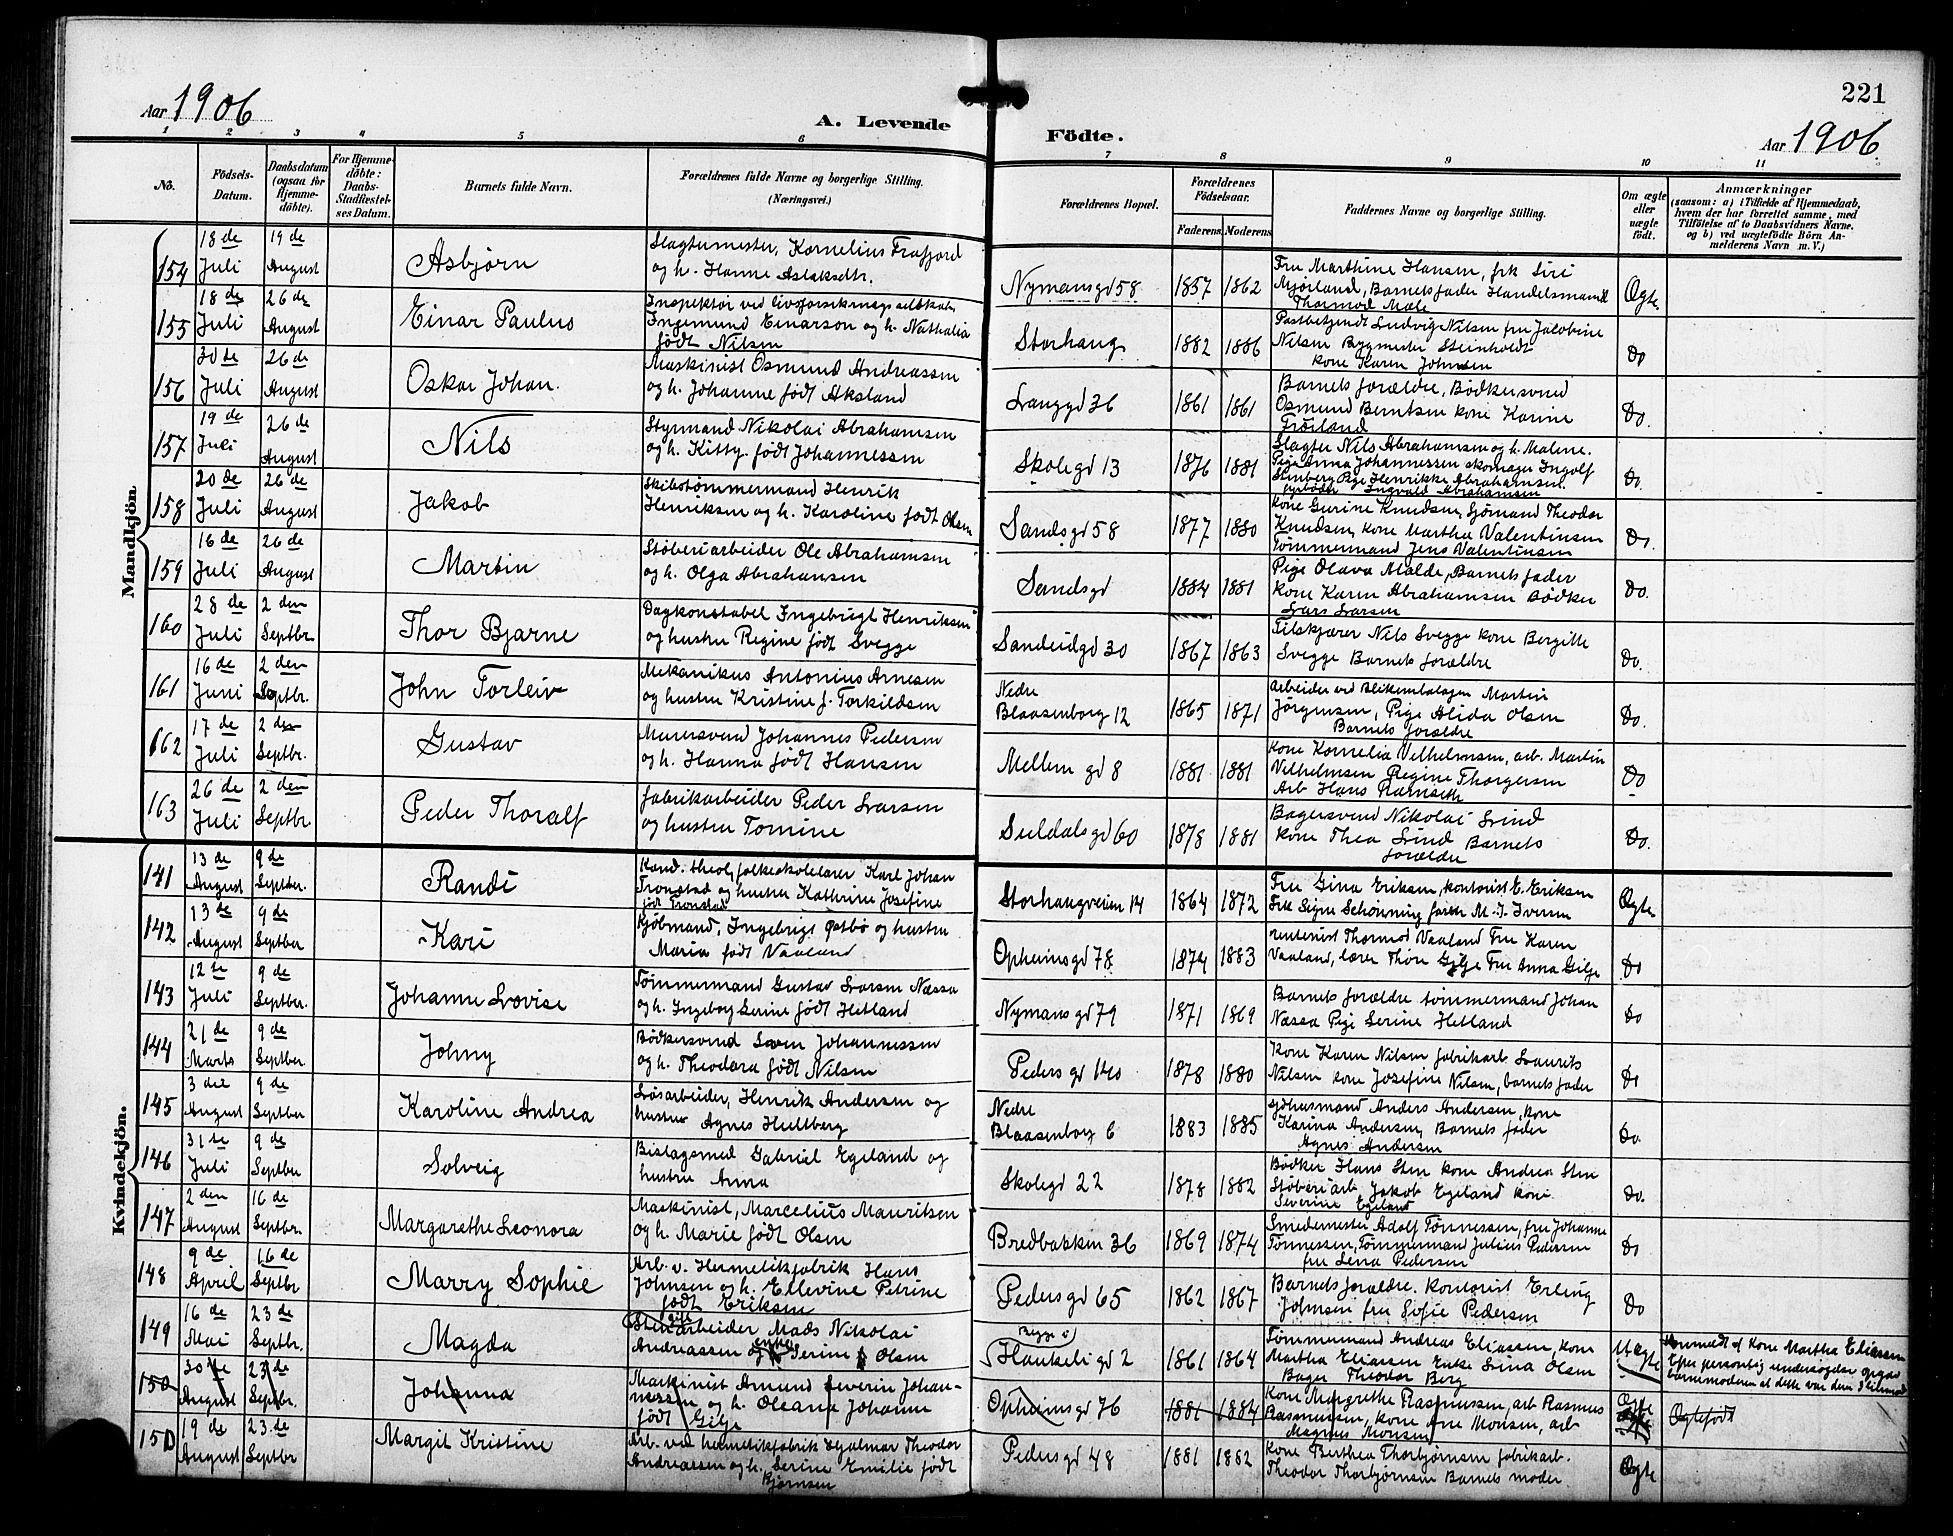 Aar 1906
A. Levende Födte.
221
Aar 1906.
1 2 3 4 5 6 7 8 9 10 11
No.
Födsels-Datum.
Daabsdatum (ogsaa for Hjemmedöbte).
For Hjemmedöbte: Daabs-Stadfæstelses Datum.
Barnets fulde Navn.
Forældrenes fulde Navne og borgerlige Stilling.
(Næringsvei.)
Forældrenes Bopæl.
Forældrenes Födselsaar.
Faderens Moderens
Faddernes Navne og borgerlige Stilling.
Om ægte eller uægte födt.
Anmærkninger
(saasom: a) i Tilfælde af Hjemmedaab,
hvem der har forrettet samme, med
Tilföielse af to Daabsvidners Navne,
og b) ved uægtefödte Börn An-
melderens Navn m. V.)
Mandkjön.
154 18de Juli 19de August Asbjörn
Slagtermester, Kornelius Frafjord
og h. Hanne Aslaksdtr.
Nymansgd 58 1857 1862
Fru Marthine Hansen, frk Siri
Mjörlund, Barnets fader Handelsmand
Thormod Mæle
Ægte
155 18de Juli 26de August Einar Paulus
Inspektör ved livsforsikringsselskab
Ingemund Einarson og h. Nathalia
födt Nilsen
Storhaug 1882 1886
Postbetjendt Ludvig Nilsen fru Jacobine
Nilsen Bygmester Steinholdt
kone Karen Johnsen
Do
156 30te Juli 26de August Oskar Johan.
Maskinist Osmund Andreassen
og h. Johanne födt Aksland
Langgd 36 1861 1861
Barnets forældre, Bödkersvend
Osmund Berntsen kone Karine
Fröiland
Do.
157 19de Juli 26de August Nils
Styrmand Nikolai Abrahamsen
og h. Kitty födt Johannessen
Skolegd 13 1876 1881
Slagter Nils Abrahamsen og h. Malene.
Pige Anna Johannessen skomager Ingolf
Stenberg Pige Henrikke Abrahamsen.
Ingvald Abrahamsen
Do.
158 20de Juli 26de August Jakob
Skibstömmermand Henrik
Henriksen og h. Karoline födt Olsen
Sandsgd 58 1877 1880
Kone Gurine Knudsen, Sjömand Theodor
Knudsen, kone Martha Valentinsen
Tömmermand Jens Valentinsen
Do.
159 16de Juli 26de August Martin
Stöberiarbeider Ole Abrahamsen
og h. Olga Abrahansen
Sandsgd 1884 1881
Pige Olava Malde, Barnets fader
kone Karen Abrahamsen Bödker
Lars Larsen
Do.
160 28de Juli 2den Septbr Thor Bjarne
Dagkonstabel Ingebrigt Henriksen
og hustru Regine födt Svegge
Sandeidgd 30 1867 1863
Filskjærer Nils Svegge kone Bergitte
Svegge Barnets forældre
Do.
161 16de Juni 2den Septbr. John Torleiv
Mekanikus Antonius Arnesen
og hustru Kristine f. Torkildsen
Nedre Blaasenborg 12 1865 1871
Arbeider ved Blikemballagen Martin
Jörgensen, Pige Alida Olsen
Barnets forældre
Do.
162 17de Juli 2den Septbr. Gustav
Murersvend Johannes Pedersen
og h. Hanna födt Hansen
Mellem gd 8 1881 1881
Kone Kornelia Vilhelmsen, arb. Martin
Vilhelmsen Regine Thorgersen
Arb Hans Ramseth
Do
163 26de Juli 2den Septbr. Peder Thoralf
Fabrikarbeider Peder Larsen
og hustru Tomine
Suldalsgd 60 1878 1881
Bagersvend Nikolai Lind
kone Thea Lind Barnets
forældre
Do.
Kvindekjön.
141 13de August 9de Septber. Randi
Kand. theol, folkeskolelærer Karl Johan
Tronstad og hustru Kathrine Josefine
födt Tronstad
Storhaugveien 14 1864 1872
Fru Gina Eriksen, kontorist E. Eriksen
Frk Signe Schönning farth M. J. Iversen
Ægte
142 13de August 9de Septber Kari
Kjöbmand, Ingebrigt Östbö og hustru
Maria födt Vaaland
Opheimsgd 78 1874 1883
rentenist Thormod Vaaland Fru Karen
Vaaland, lærer Thore Gilje Fru Anna Gilje
Do
143 12te Juli 9de Septber. Johanne Lovise
Tömmermand Gustav Larsen Næssa
og h. Ingeborg Serine födt Hetland
Nymansgd 79 1871 1869
Barnets forældre tömmermand Johan
Næssa Pige Serine Hetland
Do
144 21de Marts 9de Septber Johny
Bödkersvend Sven Johannessen
og h. Theodora födt Nilsen
Pedersgd 140 1878 1880
Kone Karen Nilsen fabrikarb. Laurits
Nilsen kone Josefine Nilsen, barnets fader
Do
145 3die August 9de Septber Karoline Andrea
Lösarbeider, Henrik Andersen og
hustru Agnes Hultberg
Nedre Blaasenborg 6 1883 1885
Anders Andersen, kone
Karina Andersen, Barnets fader
Agnes Andersen
Do.
146 31te Juli 9de Septber Solveig
Beslagsmed Gabriel Egeland og
hustru Anna
Skolegd 22 1878 1882
Bödker Hans Sten kone Andrea Sten
Stöberiarb. Jakob Egeland kone.
Severine Egeland
Do.
147 2den August 16de Septber. Margarethe Leonora
Maskinist, Marcelius Mauritsen
og h. Marie födt Olsen
Bredbakken 36 1869 1874
Smedemester Adolf Tönnessen, fru Johanne
Tönnessen, Tömmermand Julius Pedersen
fru Lena Pedersen
Do
148 9de April 16de Septbr Marry Sophie
Arb. v. Hermetikfabrik Hans
Johnsen og h. Ellevine Petrine
födt Eriksen
Pedersgd 65 1862 1867
Barnets forældre. kontorist Erling
Johnsen fru Sofie Pedersen
Do
149 16de Mai 23de Septbr. Magda
Stenarbeider Mads Nikolai
Andreassen og enke Serine Olsen
Begge i
Haukeligd 2 1861 1864
Tömmermand Andreas Eliassen, kone
Martha Eliassen Enke Lina Olsen
Bager Theodor Berg
Uægte
Anmeldt af Kone Martha Eliassen
Efter personlig undersögelse opgav
barnemoderen at dette var den
150 30te August 23de Septbr. Johanna
Maskinist Amund Severin Johan-
nessen og h. Oleane Johanne
födt Gilje
Opheimsgd 76 1881 1884
Kone Margrethe Rasmussen, arb Rasmus
Rasmussen, kone Ane Monsen, arb
Magnus Monsen
Ægte
Ægtefödt
150 19de August 23de Septbr Margit Kristine
Arb. ved hermetikfabrik Hjalmar Theodor
Andreassen og h. Serine Emilie födt
Björnsen
Pedersgd 48 1881 1882
Kone Berthea Thorbjörnsen fabrikarb.
Theodor Thorbjörnsen Barnets moder
Ægte